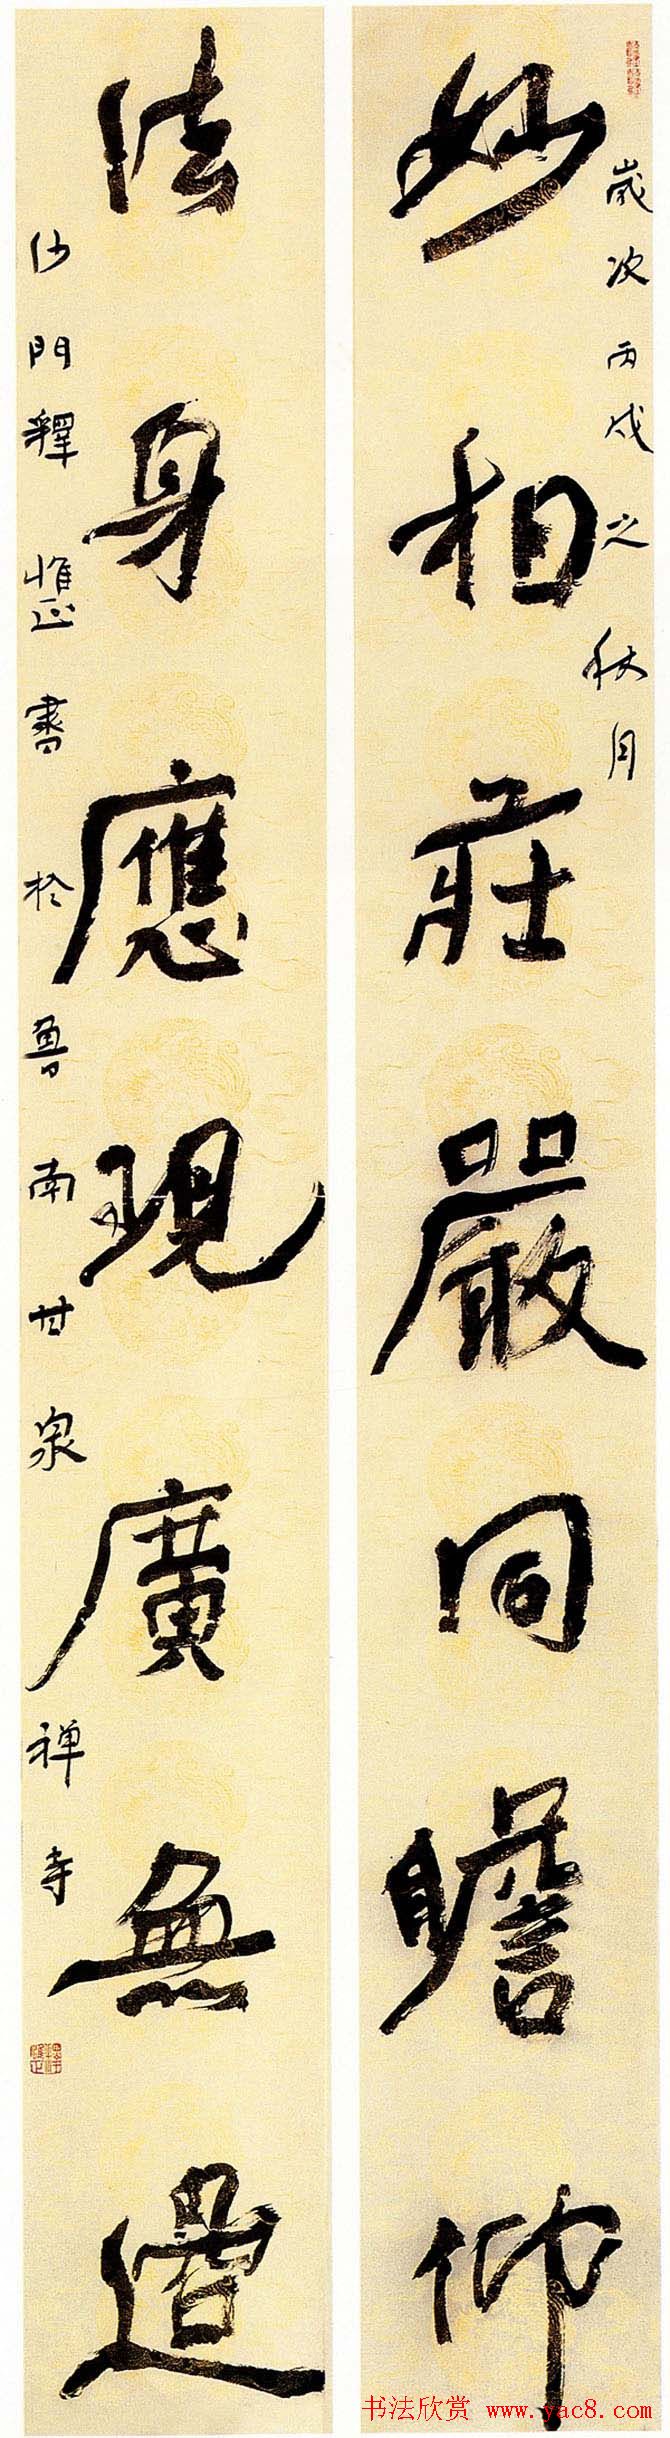 歲次丙戌之秋月
妙相莊嚴同瞻仰
法身應現廣無邊
沙門釋惟正書於魯南甘泉禅寺
书法欣赏 www.yac8.com